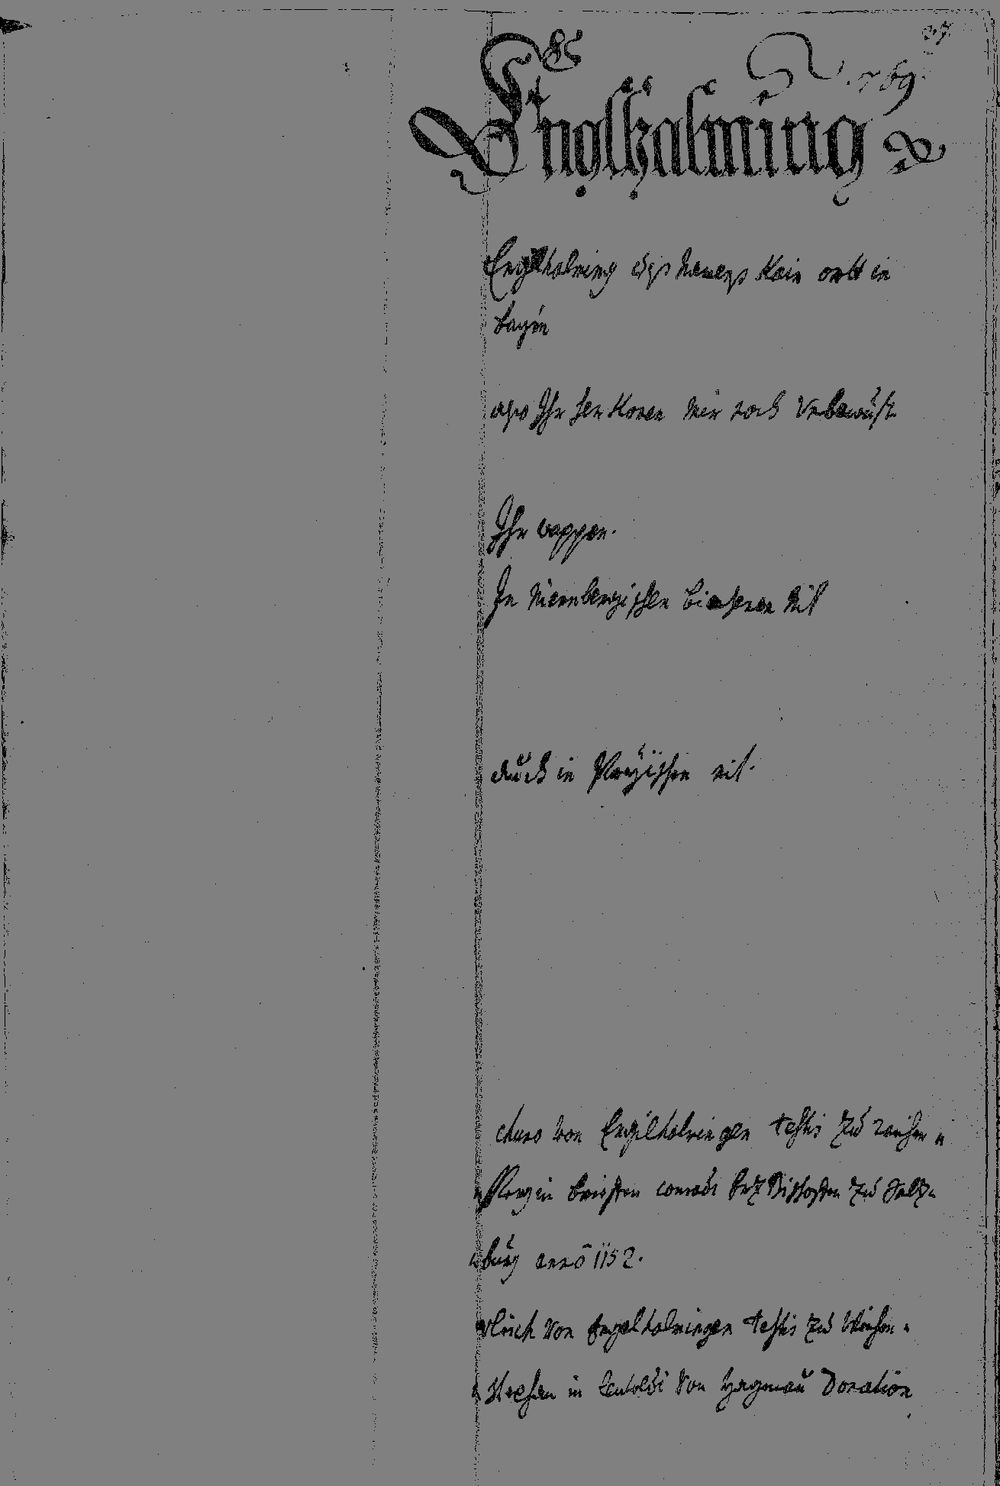 27.
1769
Englhalming
Englhalming diss Namens kain ortt in
bayrn
also Ihr her komen mir noch Unbewust
Ihr wappen.
In Niernbergischen biechern nit
Auch in Prey̆ischen nit.
chuno von Engilhalmingen testis zu reichers
perg in brieffen conradi Ertz Bischoffen zu Saltz
burg anno 1152.
Ulrich von Engelhalmingen testis zu
in Leutoldi Von Hagenau Donation